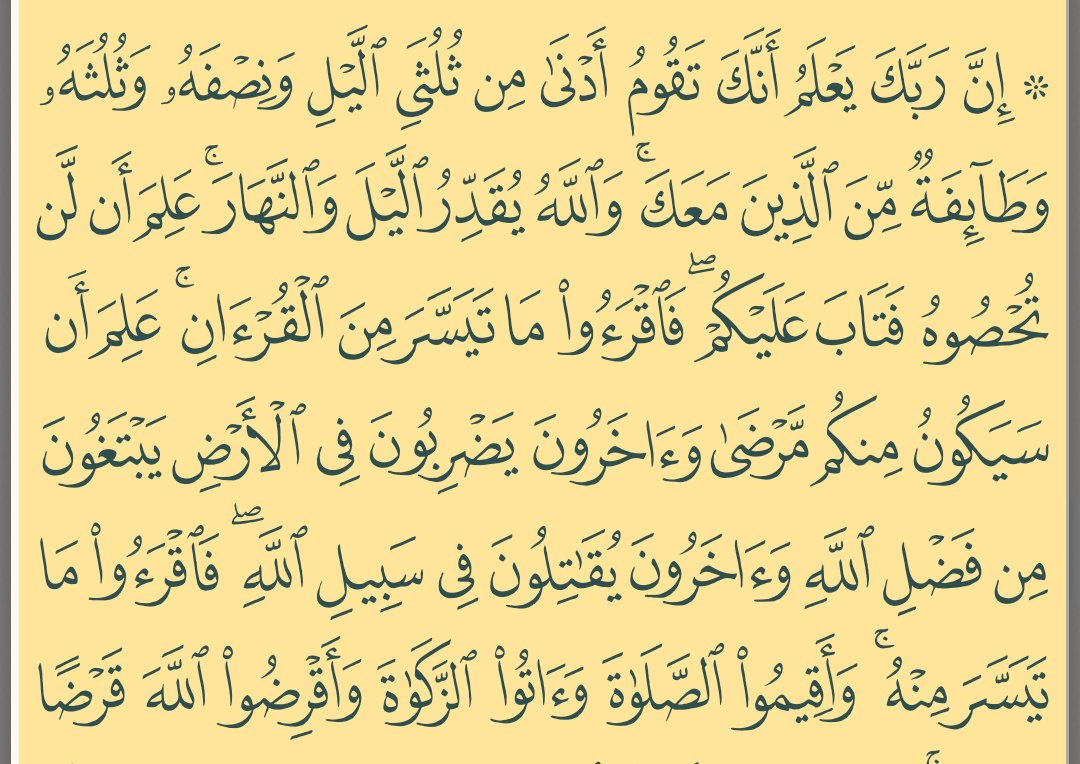 ۞ إِنَّ رَبَّكَ يَعْلَمُ أَنَّكَ تَقُومُ أَدْنَىٰ مِن ثُلُثَيِ ٱلَّيْلِ وَنِصْفَهُۥ وَثُلُثَهُۥ
وَطَآئِفَةٌ مِّنَ ٱلَّذِينَ مَعَكَ ۚ وَٱللَّهُ يُقَدِّرُ ٱلَّيْلَ وَٱلنَّهَارَ ۚ عَلِمَ أَن لَّن
تُحْصُوهُ فَتَابَ عَلَيْكُمْ ۖ فَٱقْرَءُوا۟ مَا تَيَسَّرَ مِنَ ٱلْقُرْءَانِ ۚ عَلِمَ أَن
سَيَكُونُ مِنكُم مَّرْضَىٰ وَءَاخَرُونَ يَضْرِبُونَ فِى ٱلْأَرْضِ يَبْتَغُونَ
مِن فَضْلِ ٱللَّهِ وَءَاخَرُونَ يُقَـٰتِلُونَ فِى سَبِيلِ ٱللَّهِ ۖ فَٱقْرَءُوا۟ مَا
تَيَسَّرَ مِنْهُ ۚ وَأَقِيمُوا۟ ٱلصَّلَوٰةَ وَءَاتُوا۟ ٱلزَّكَوٰةَ وَأَقْرِضُوا۟ ٱللَّهَ قَرْضًا